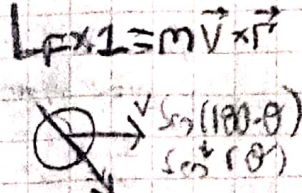 L_F×1=m\vec{V}×\vec{r}
V
Sen(180-θ)
Sen(θ)